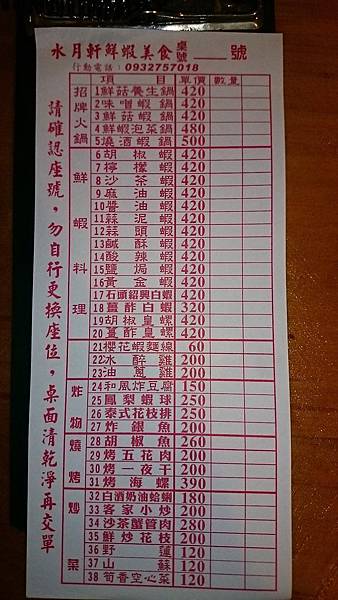 水月軒鮮蝦美食 桌號 號
行動電話：0932757018
項目 單價 數量
招牌火鍋
1 鮮菇養生鍋 420
2 味噌蝦鍋 420
3 鮮菇蝦鍋 420
4 鮮蝦泡菜鍋 480
5 燒酒蝦鍋 500
鮮蝦料理
6 胡椒蝦 420
7 檸檬蝦 420
8 沙茶蝦 420
9 麻油蝦 420
10 醬油蝦 420
11 蒜泥蝦 420
12 蒜頭蝦 420
13 鹹酥蝦 420
14 酸辣蝦 420
15 鹽焗蝦 420
16 黃金蝦 420
17 石頭紹興白蝦 420
18 薑酢白蝦 320
19 胡椒皇螺 420
20 薑酢皇螺 420
21 櫻花蝦麵線 60
22 冰醉雞 200
23 油蔥雞 200
炸物
24 和風炸豆腐 150
25 鳳梨蝦球 250
26 泰式花枝排 250
27 炸銀魚 200
燒烤
28 胡椒魚 260
29 烤五花肉 200
30 烤一夜干 200
31 烤海螺 390
炒菜
32 白酒奶油蛤蜊 180
33 客家小炒 200
34 沙茶蟹管肉 280
35 鮮炒花枝 200
36 野蓮 120
37 山蘇 120
38 筍香空心菜 120
請確認座號，勿自行更換座位，桌面清乾淨再交單